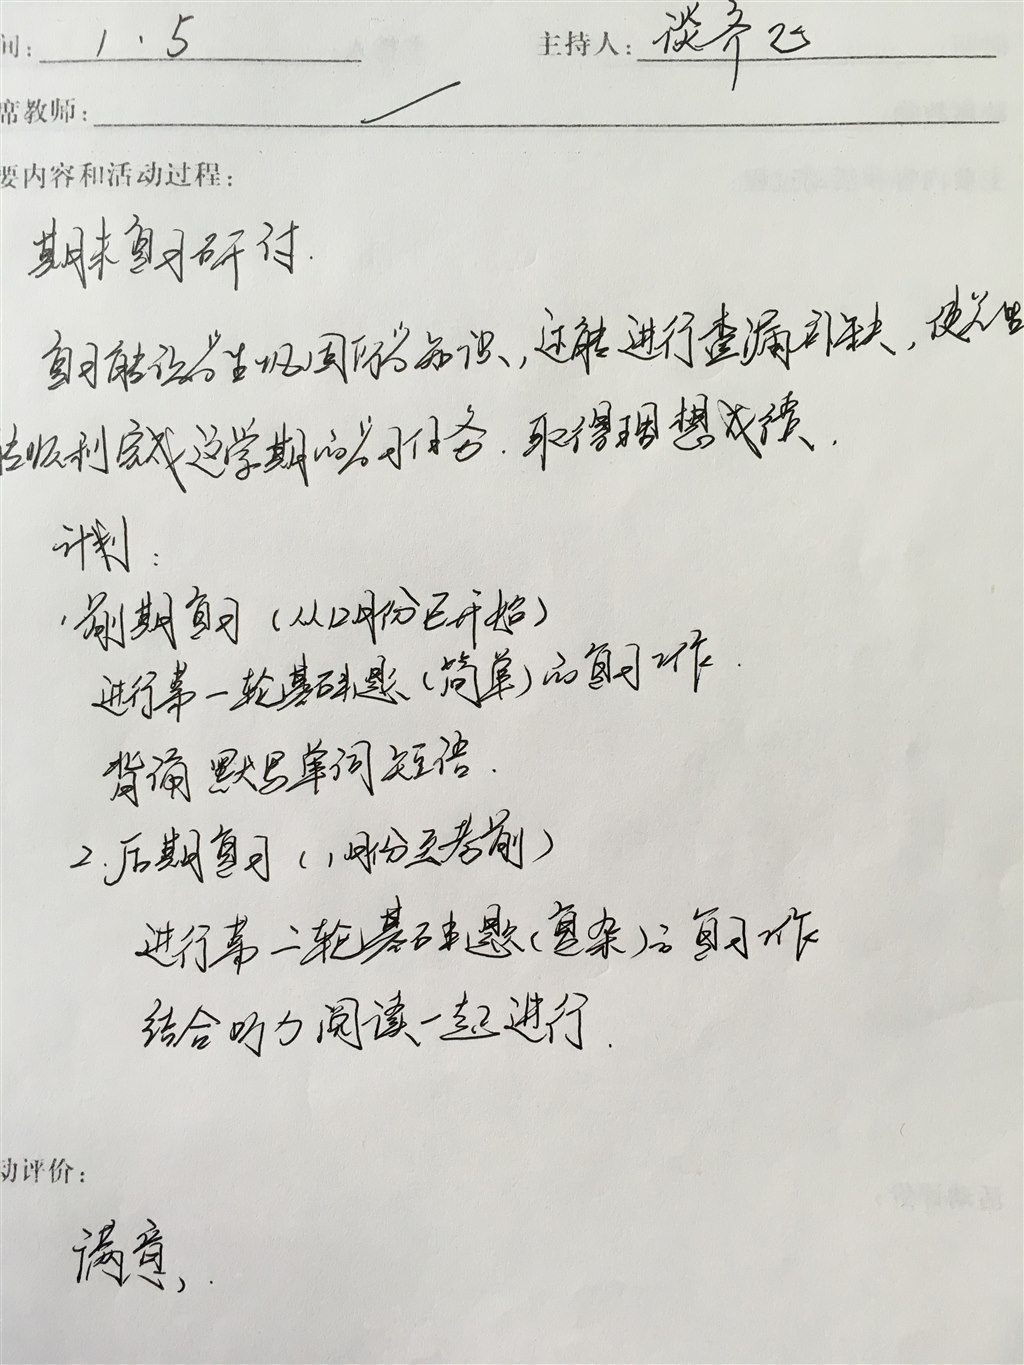 间: 1.5 主持人: 谈齐飞
席教师:
要内容和活动过程:
期末复习研讨.
复习能让学生巩固所学知识,还能进行查漏补缺,使学生
能顺利完成这学期的学习任务.取得理想成绩.
计划:
1.前期复习(从12月份已开始)
进行第一轮基础题(简单)的复习工作.
背诵默写单词短语.
2.后期复习(1月份至考前)
进行第二轮基础题(复杂)的复习工作
结合听力阅读一起进行.
动评价:
满意,.